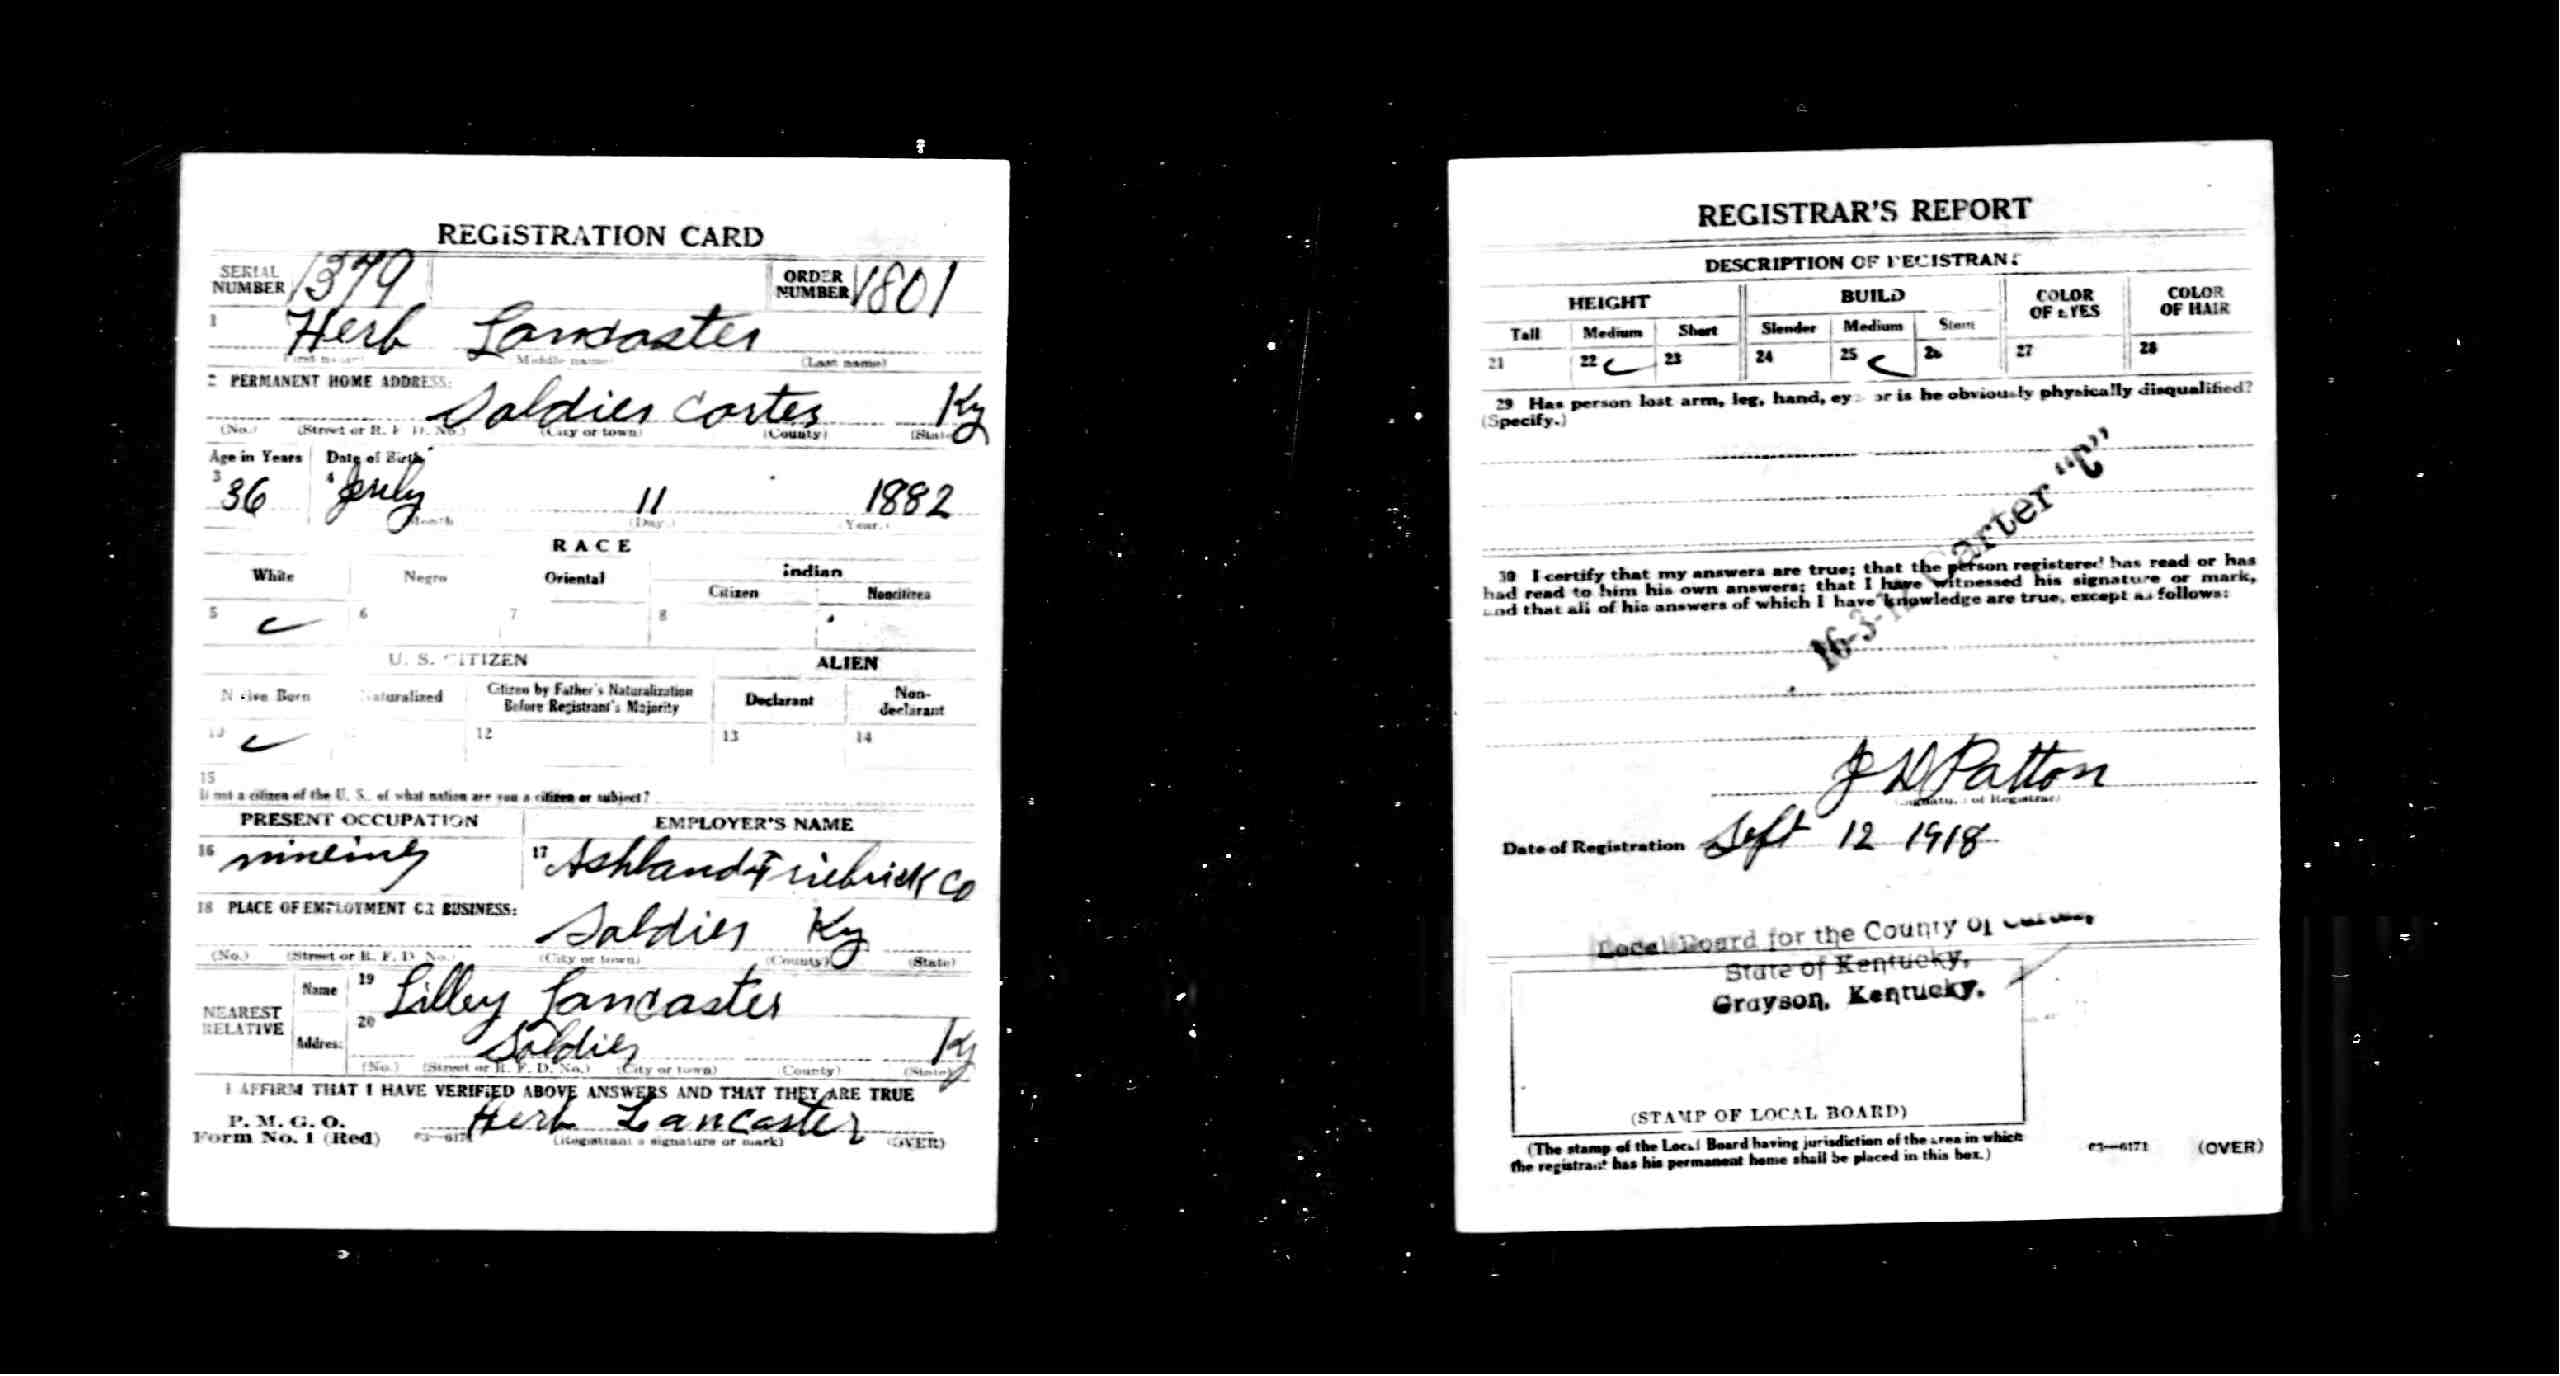 REGISTRATION CARD
SERIAL NUMBER 1379 ORDER NUMBER 1801
1 Herb Lancaster
(First name) (Middle name) (Last name)
2 PERMANENT HOME ADDRESS:
Soldier Carter Ky
(No.) (Street or R. F. D. No.) (City or town) (County) (State)
Age in Years Date of Birth
3 36 4 July 11 1882
Month (Day.) (Year.)
RACE
White Negro Oriental Indian
Citizen Noncitizen
5 6 7 8
U. S. CITIZEN ALIEN
Native Born Naturalized Citizen by Father's Naturalization Before Registrant's Majority Declarant Non-declarant
10 12 13 14
15
If not a citizen of the U. S., of what nation are you a citizen or subject?
PRESENT OCCUPATION EMPLOYER'S NAME
16 mineing 17 Ashland Firebrick Co
18 PLACE OF EMPLOYMENT OR BUSINESS:
Soldier Ky
(No.) (Street or R. F. D. No.) (City or town) (County) (State)
NEAREST RELATIVE Name 19 Lilley Lancaster
Address 20 Soldier Ky
(No.) (Street or R. F. D. No.) (City or town) (County) (State)
I AFFIRM THAT I HAVE VERIFIED ABOVE ANSWERS AND THAT THEY ARE TRUE
P. M. G. O.
Form No. 1 (Red) 03—6171 Herb Lancaster
(Registrant's signature or mark) (OVER)
REGISTRAR'S REPORT
DESCRIPTION OF REGISTRANT
HEIGHT BUILD COLOR OF EYES COLOR OF HAIR
Tall Medium Short Slender Medium Stout
21 22 23 24 25 26 27 28
29 Has person lost arm, leg, hand, eye, or is he obviously physically disqualified?
(Specify.)
Carter "C"
30 I certify that my answers are true; that the person registered has read or has
had read to him his own answers; that I have witnessed his signature or mark,
and that all of his answers of which I have knowledge are true, except as follows:
J H Patton
(Signature of Registrar)
Date of Registration Sept 12 1918
Local Board for the County of Carter,
State of Kentucky,
Grayson, Kentucky.
(STAMP OF LOCAL BOARD)
(The stamp of the Local Board having jurisdiction of the area in which
the registrant has his permanent home shall be placed in this box.)
03—6171 (OVER)